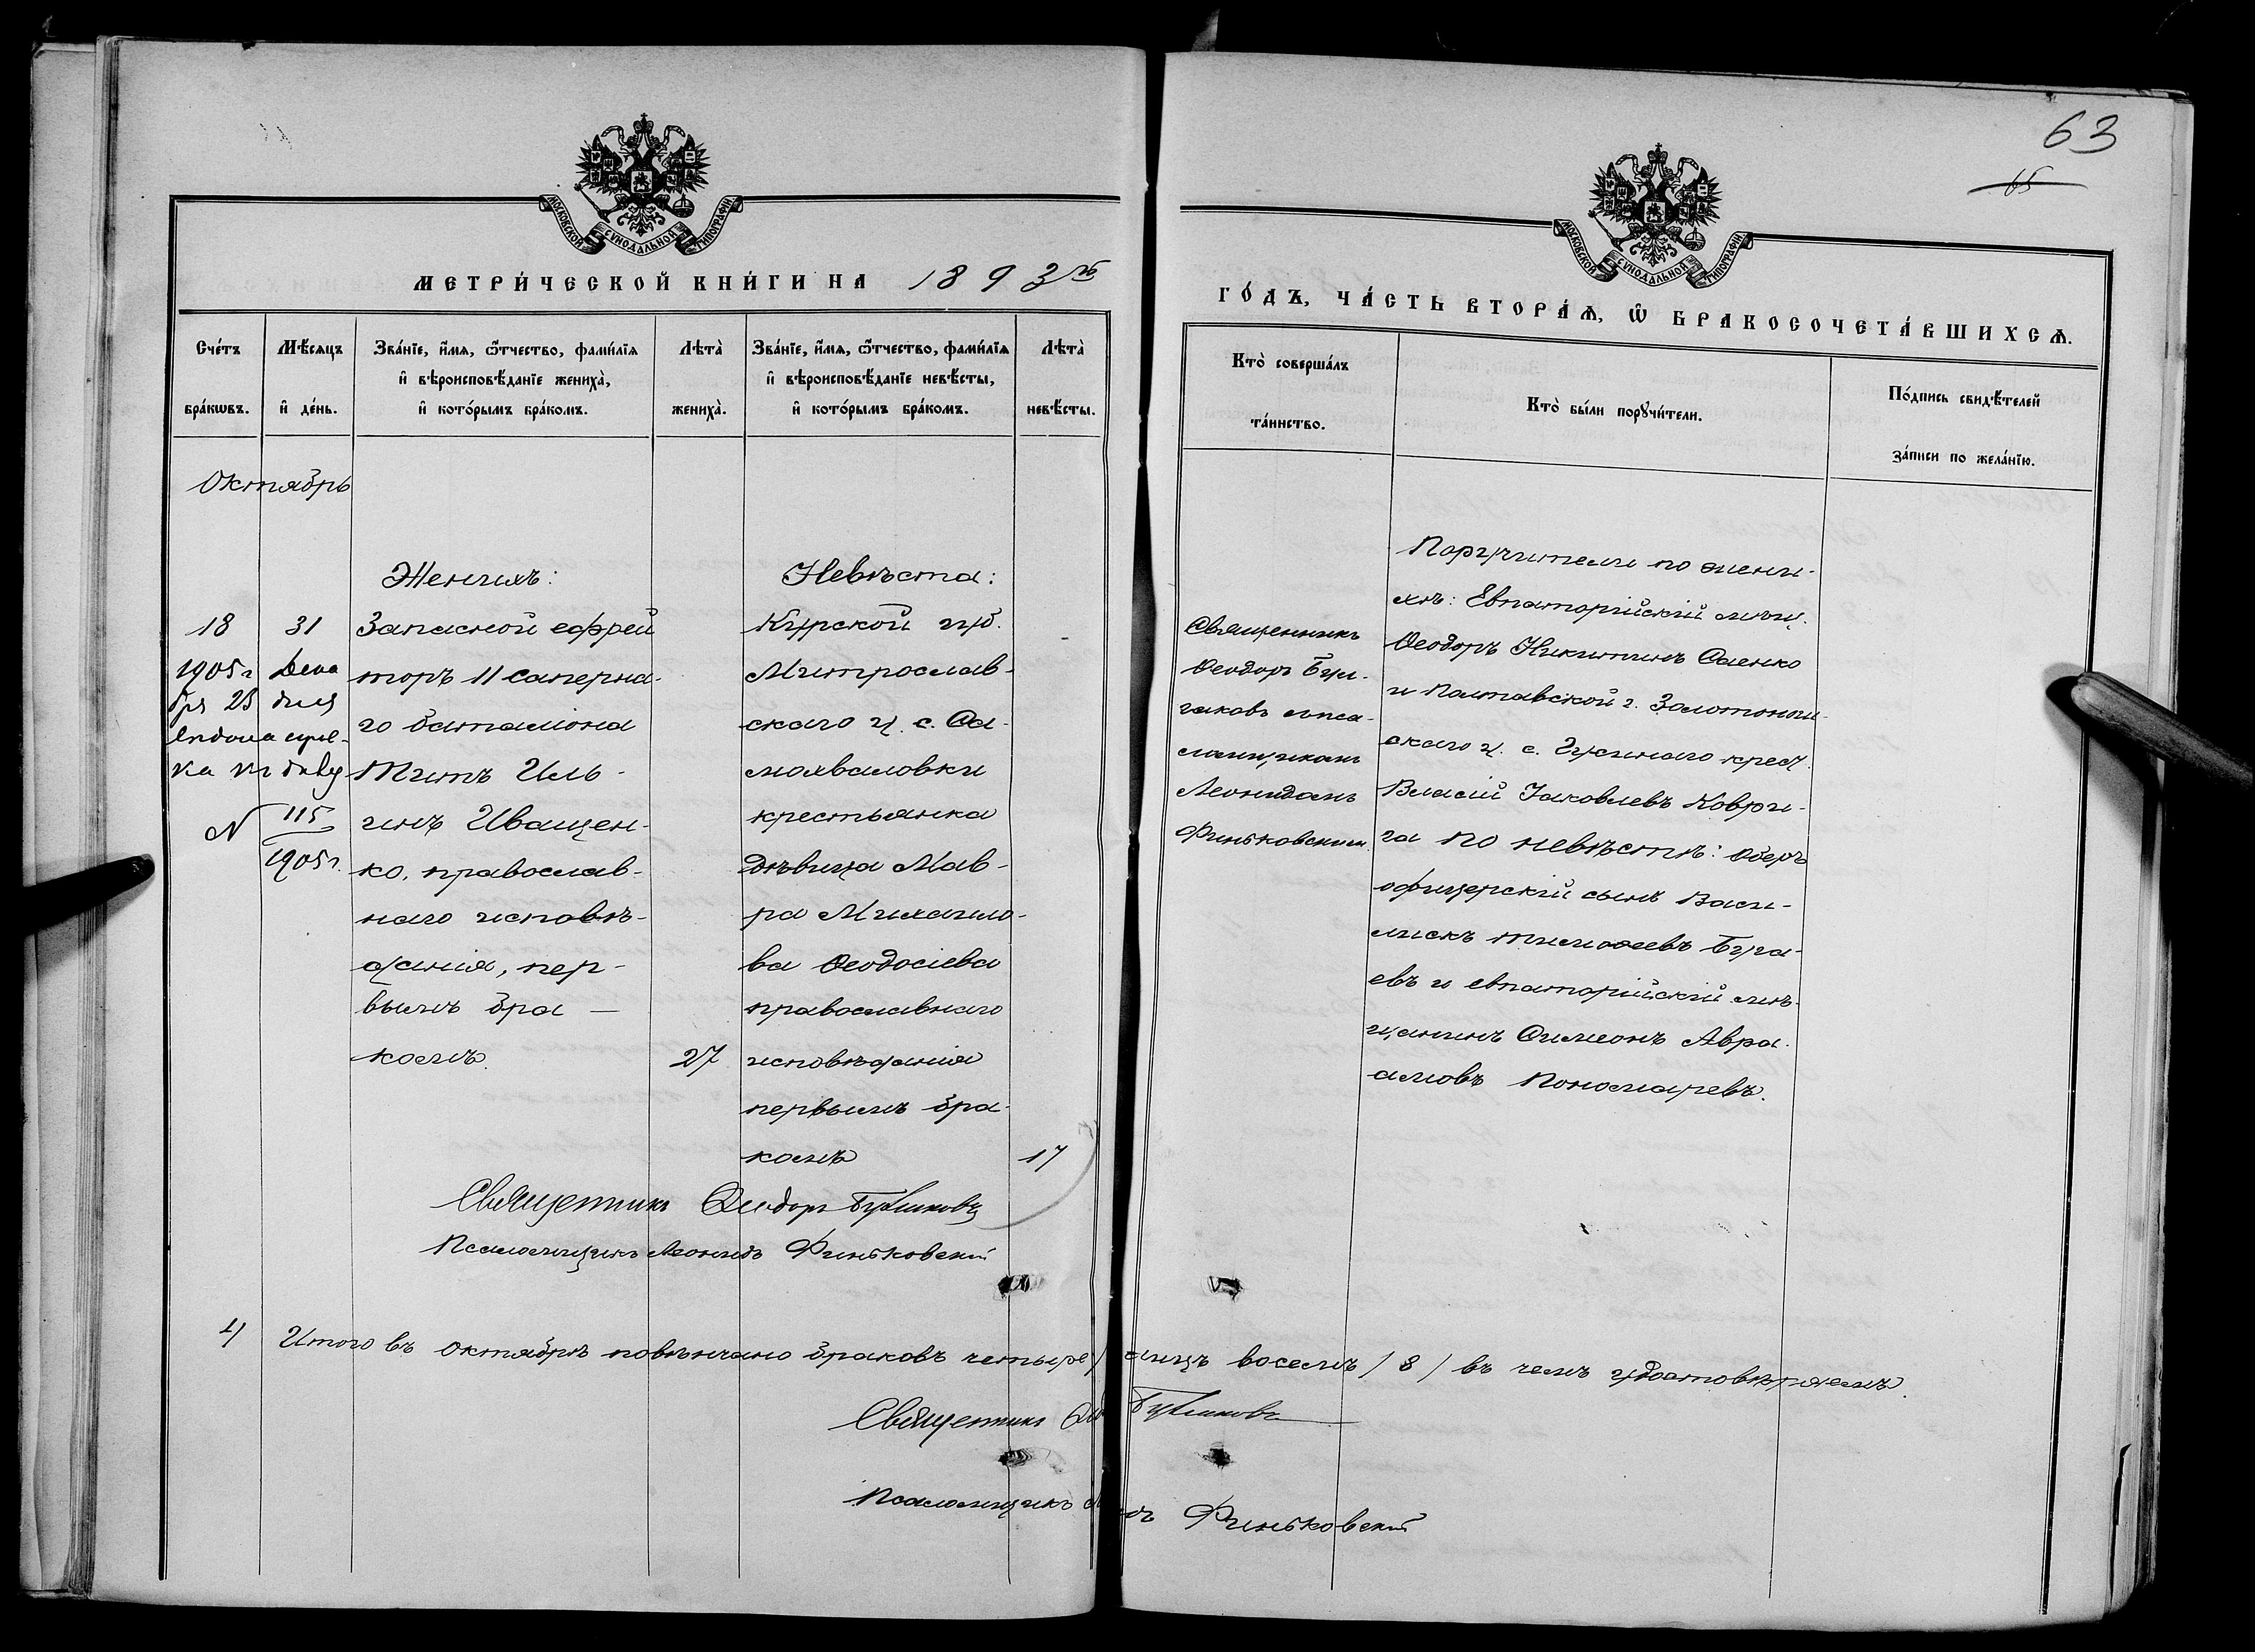 63
65
МОСКОВСКОЙ СУНОДАЛЬНОЙ ТИПОГРАФІИ
МОСКОВСКОЙ СУНОДАЛЬНОЙ ТИПОГРАФІИ
МЕТРИ́ЧЕСКОЙ КНИ́ГИ НА 1893й
ГО́ДЪ, ЧА́СТЬ ВТОРА́Ѧ, Ѡ҆ БРАКОСОЧЕТА́ВШИХСѦ.
Сче́тъ бра́кѡвъ.
Мѣ́сяцъ и҆ де́нь.
Зва́нїе, и҆́мѧ, ѻ҆́тчество, фами́лїѧ
и҆ вѣроисповѣ́данїе жениха̀,
и҆ кото́рымъ бра́комъ.
Лѣта̀ жениха̀.
Зва́нїе, и҆́мѧ, ѻ҆́тчество, фами́лїѧ
и҆ вѣроисповѣ́данїе невѣ́сты,
и҆ кото́рымъ бра́комъ.
Лѣта̀ невѣ́сты.
Кто̀ соверша́лъ
та́инство.
Кто̀ бы́ли порꙋчи́тели.
По́дпись свидѣ́телей
за́писи по жела́нїю.
Октябрь
18
31
1905г Дека
бря 23 дня
ка
№ 115
1905г.
Женихъ:
Запасной ефрей
торъ 11 сапернa-
го баталіона
Титъ Иль-
инъ Иващен-
ко, православ-
наго исповѣ-
данія, пер-
вымъ бра —
комъ.
27
Невѣста:
Курской губ.
Митрослав-
скаго у. с. Са-
мохваловки
крестьянка
дѣвица Мав-
ра Михаило-
ва Ѳеодосіева
православнаго
исповѣданія
первымъ бра-
комъ
17
Священникъ
Ѳеодоръ Бул-
гаковъ съ пса-
ломщикомъ
Леонидомъ
Финьковскимъ.
Поручители по жени-
хѣ: Евпаторійскій мѣщ.
Ѳеодоръ Никитинъ Саенко
и Полтавской г. Золотонош-
скаго у. с. Гусинаго крест.
Власій Іаковлевъ Коври-
га по невѣстѣ: оберъ
офицерскій сынъ Васи-
лискъ Тимоѳеевъ Буга-
евъ и евпаторійскій мѣ-
щанинъ Симеонъ Авра-
амовъ Пономаревъ.
Священникъ Ѳеодоръ Булгаковъ
Псаломщикъ Леонидъ Финьковскій
4 Итого въ октябрѣ повѣнчано браковъ четыре, лицъ восемь /8/ въ чемъ удостовѣряемъ.
Священникъ Булгаковъ
Псаломщикъ Финьковскій